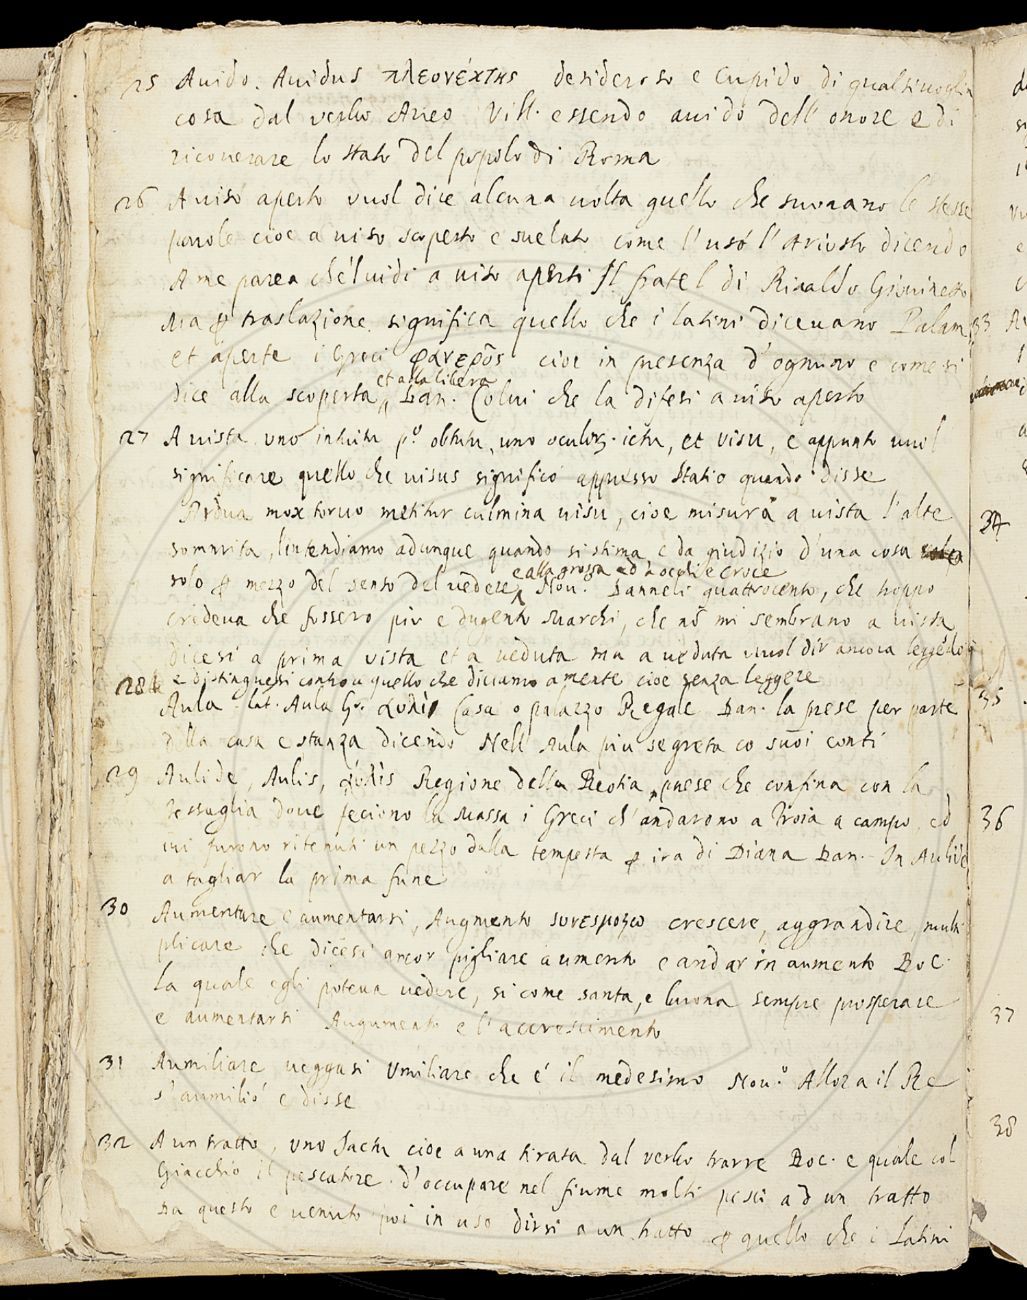 25 Auido. Auidus πλεονέχτης desideroso e Cupido di qualsiuoglia
cosa dal verbo Aueo Vill. essendo auido dell' onore e di
ricouerare lo stato del popolo di Roma
26 A uiso aperto vuol dire alcuna uolta quello che suonano le stesse
parole cioe a uiso scoperto e suelato come l'usó l'Ariosto dicendo
A me parea ch'el uidi a uiso aperti Il fratel di Rinaldo Giouinetto
Ma ꝑ traslazione significa quello che i latini diceuano Palam
et aperte i Greci φανερο͂ς cioe in presenza d'ognuno e come si
dice alla scoperta et alla libera Dan. Colui che la difesi a uiso aperto
27 A uista uno intuitu pº obtutu, uno oculoꝝ ictu, et visu, e appunto uuol
significare quello che uisus significó appresso Statio quando disse
Ardua mox toruo metitur culmina uisu, cioe misura a uista l'alte
sommita, lintendiamo adunque quando si stima e da giudizio d'una cosa
solo ꝑ mezzo del senso del uedere e alla grossa ed a occhi e croce Nou. Danneli quattrocento, che troppo
credeua che fossero piu e dugento Marchi, che nō mi sembrano a uista
dicesi a prima vista et a ueduta ma a ueduta uuol dir ancora leggēdo
e distinguesi contro a quello che diciamo a mente cioe senza leggere
28 Aula lat. Aula Gr. Casa o palazzo Regale Dan. la prese per parte
della casa e stanza dicendo Nell' Aula piu segreta co suoi conti
29 Aulide, Aulis, Regione della Beotia, paese che confina con la
Tessaglia doue feciono la Massa i Greci ch' andarono a Troia a campo, ed
iui furono ritenuti un pezzo dalla tempesta ꝑ ira di Diana Dan. In Aulide
a tagliar la prima fune
30 Aumentare e aumentarsi, Augmento crescere, aggrandire, multi
plicare che dicesi ancor pigliare aumento e andar in aumento Boc.
la quale egli poteua uedere, si come santa, e buona sempre prosperare
e aumentarsi Augumento e l'accrescimento
31 Aumiliare ueggasi Umiliare che é il medesimo Nou.º Allora il Re
s'aumilió e disse
32 A un tratto, uno Jactu cioe a una tirata dal verbo trarre Boc. e quale col
Giacchio il pescatore d'occupare nel fiume molti pesci ad un tratto
Da questo e uenuto poi in uso dirsi a un tratto ꝑ quello che i Latini
33
34
35
36
37
38